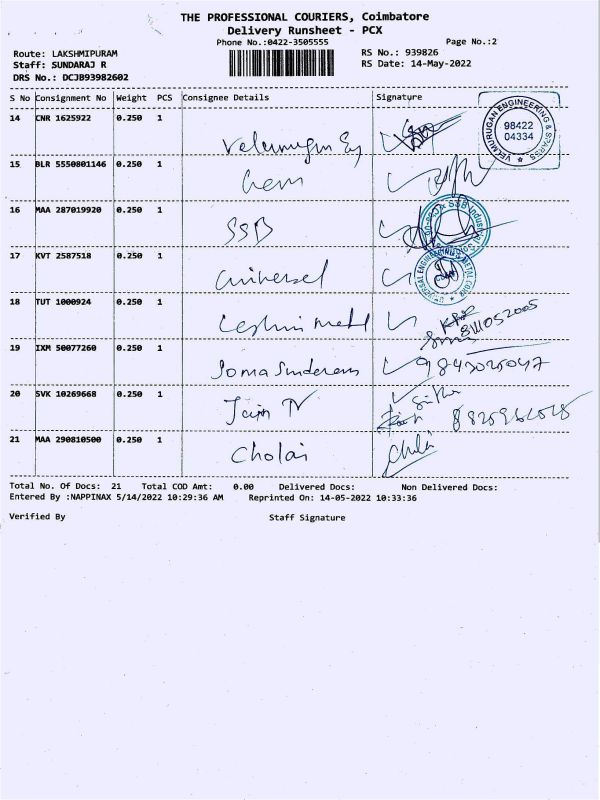 THE PROFESSIONAL COURIERS, Coimbatore
Delivery Runsheet - PCX
Phone No.:0422-3505555
Page No.:2
Route: LAKSHMIPURAM
RS No.: 939826
Staff: SUNDARAJ R
RS Date: 14-May-2022
DRS No.: DCJB93982602
S No Consignment No Weight PCS Consignee Details Signature
14 CNR 1625922 0.250 1
VELMURUGAN ENGINEERING & SPARES
98422
04334
15 BLR 5550801146 0.250 1
16 MAA 287019920 0.250 1 SSB
17 KVT 2587518 0.250 1 Universel
18 TUT 1000924 0.250 1
19 IXM 50077260 0.250 1 Soma Sunderam 9843025047
20 SVK 10269668 0.250 1 Jain TV
21 MAA 290810500 0.250 1 Cholai
Total No. Of Docs: 21 Total COD Amt: 0.00 Delivered Docs: Non Delivered Docs:
Entered By :NAPPINAX 5/14/2022 10:29:36 AM Reprinted On: 14-05-2022 10:33:36
Verified By Staff Signature